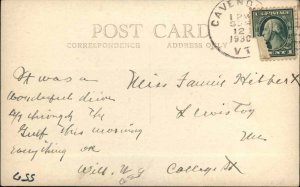 POST CARD
CORRESPONDENCE
ADDRESS ONLY
CAVEND
1 PM
12
1930
VT
It was a
wonderful drive
up through the
Gulf this morning
everything OK
Will
Miss Fannie Hibbert
Lewiston
Me
College